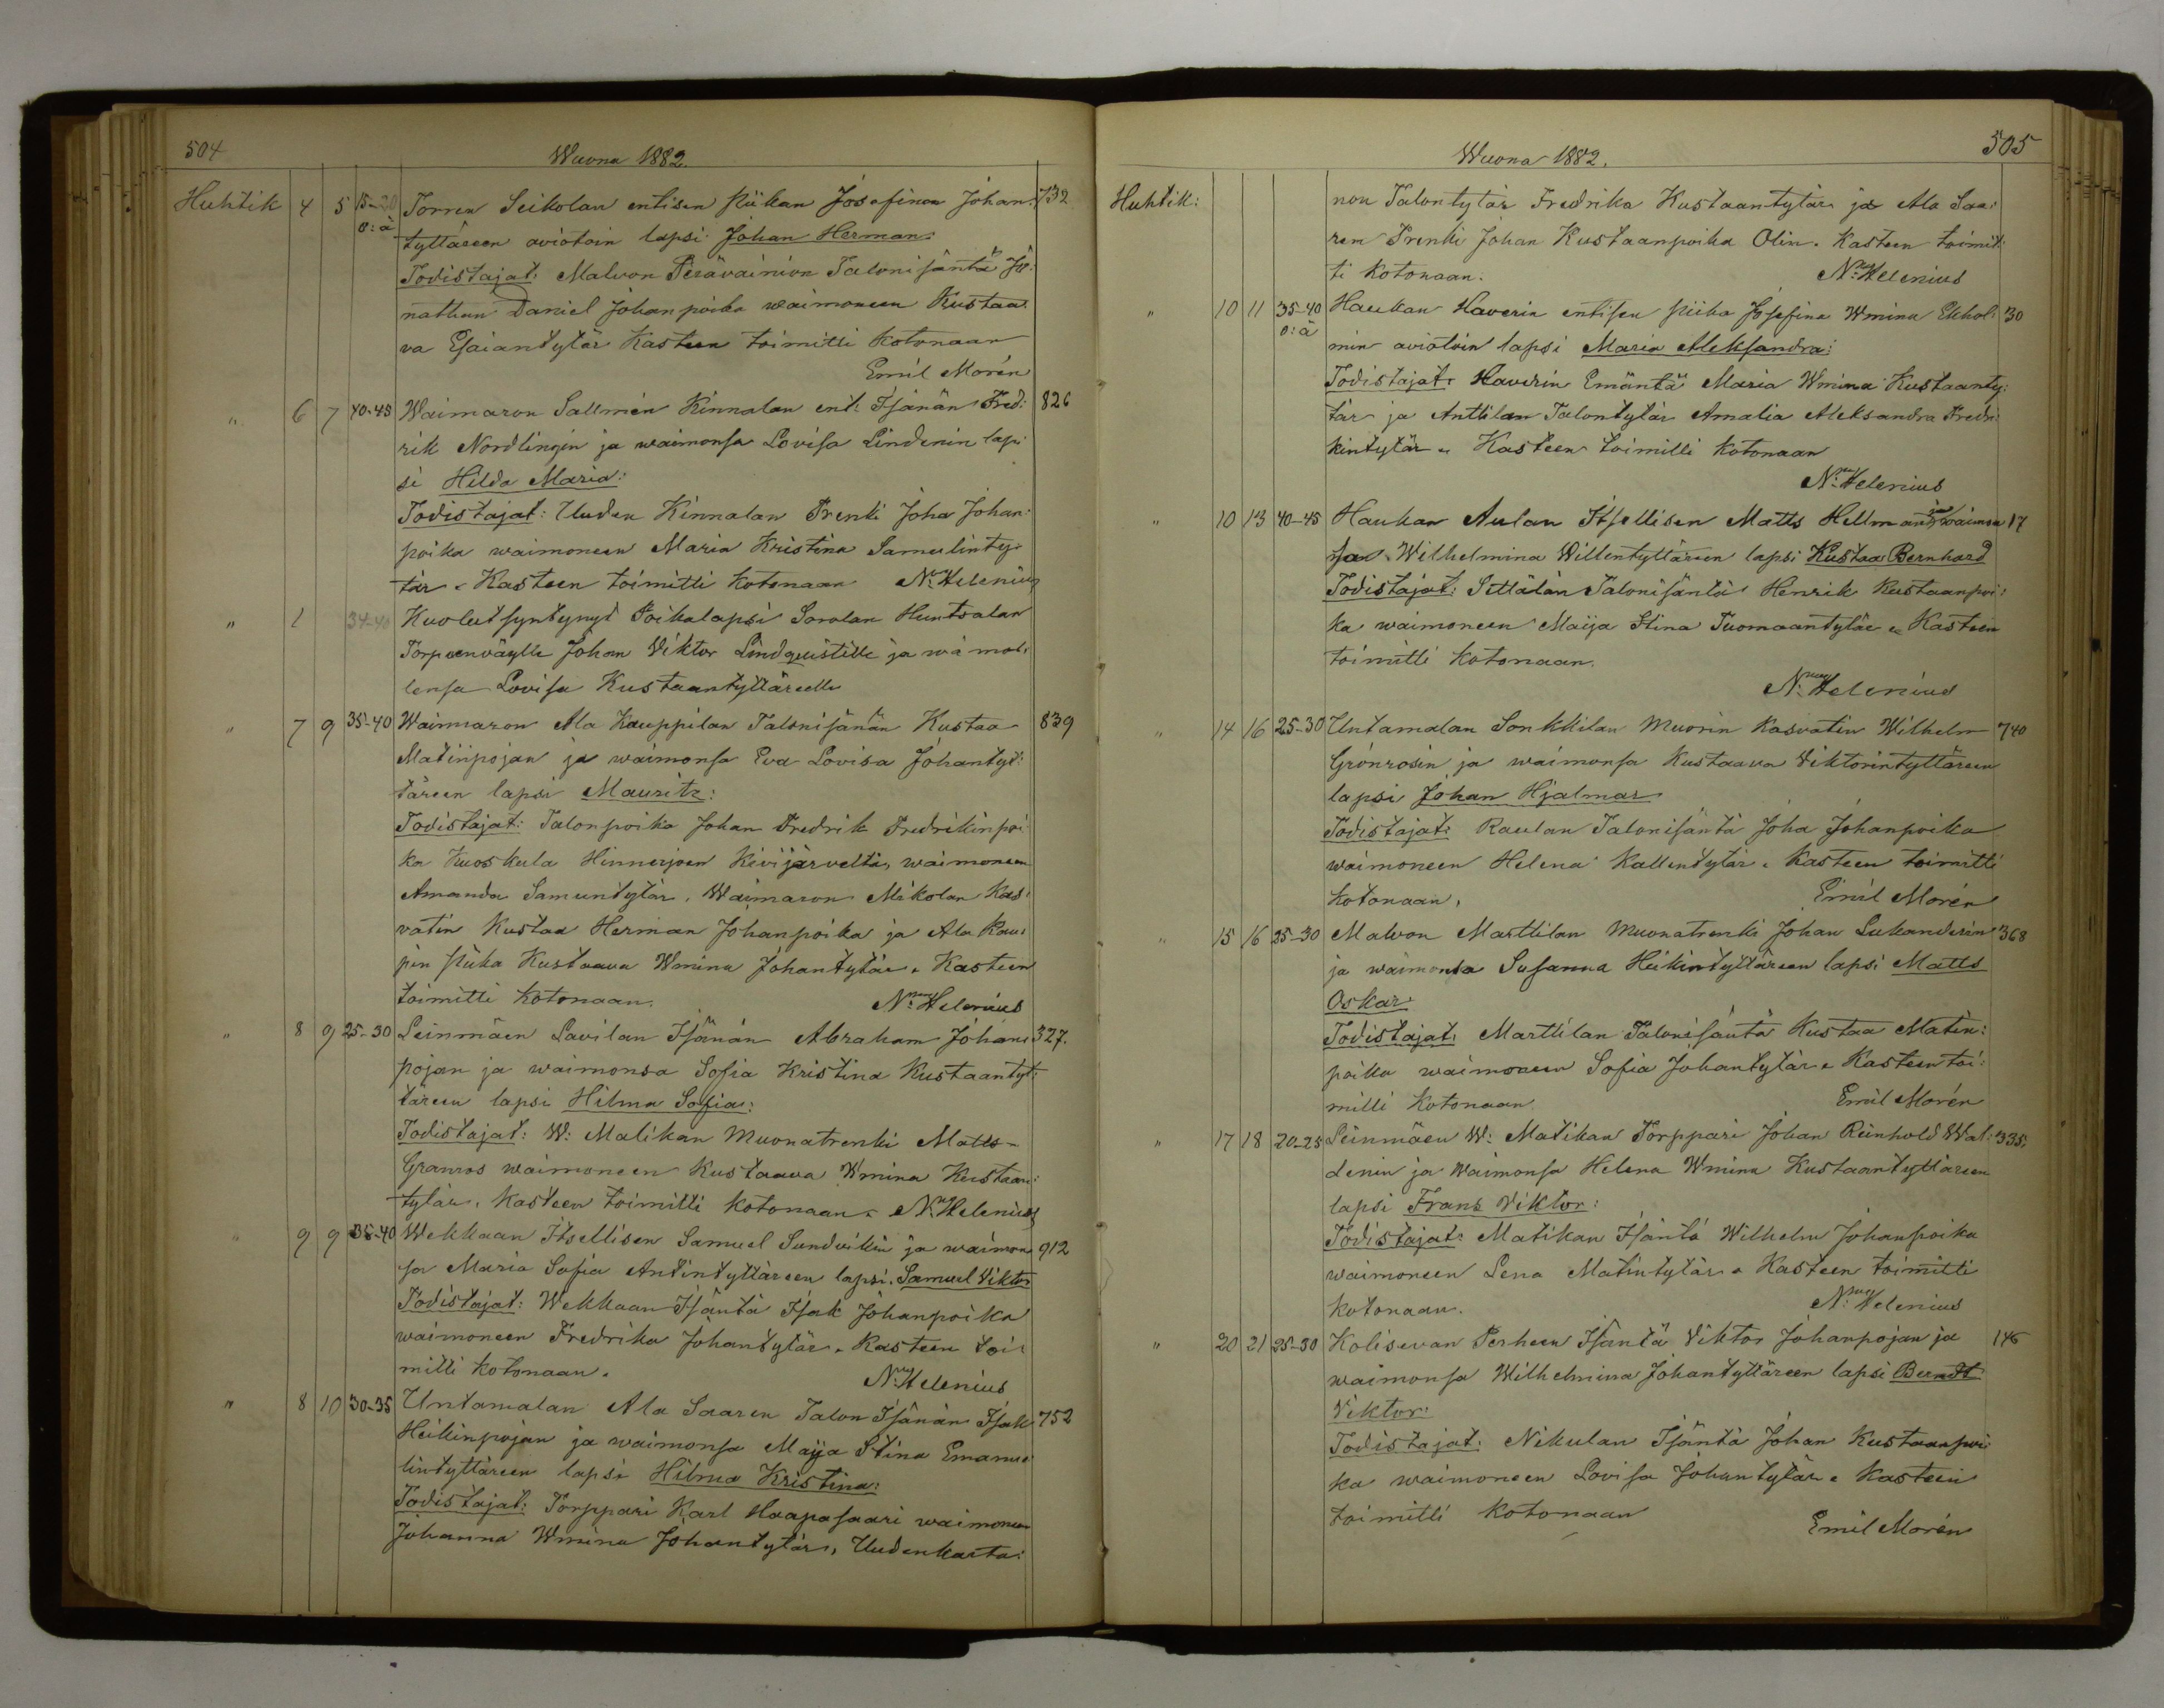 504
Wuona 1882.
Huhtik 4 5 15-20 Torren Seikolan entisen Piikan Josefinan Johan: 732
o: ä tyttäreen aviotoin lapsi Johan Herman:
Todistajat: Malvon Perävainion Talonisäntä Jo:
nathan Daniel Johanpoika waimoneen Kustaa:
va Esaiantytär Kasteen toimitti kotonaan
Emil Morén
" 6 7 40-45 Waimaron Sallmén Kinnalan ent: Isänän Fred: 826
rik Nordlingin ja waimonsa Lovisa Lindenin lap:
si Hilda Maria:
Todistajat: Uuden Kinnalan Trenki Joha Johan:
poika waimoneen Maria Kristina Samulinty:
tär. Kasteen toimitti kotonaan N: Helenius
" 1 34-40 Kuolut syntynyt Poikalapsi Soralan Huntsalan
Torpanväylle Johan Viktor Lindquistille ja wa mol:
lensa Lovisa Kustaantyttäreelle
" 7 9 35-40 Waimaron Ala Kauppilan Talonisänän Kustaa 839
Matinpojan ja waimonsa Eva Lovisa Johantyt:
täreen lapsi Mauritz:
Todistajat: Talonpoika Johan Fredrik Fredrikinpoi
ka Kuoskula Hinnerjoen Kivijärveltä, waimoneen
Amanda Samuntytär, Waimaron Mikolan Kas:
vatin Kustaa Herman Johanpoika ja Ala Kau:
pin Piika Kustaava Wmina Johantytär. Kasteen
toimitti kotonaan. N: Helenius
" 8 9 25-30 Leinmäen Lavilan Isänän Abraham Johan: 327.
pojan ja waimonsa Sofia Kristina Kustaantyt:
täreen lapsi Hilma Sofia:
Todistajat: W: Matikan Muonatrenki Matts
Granros waimoneen Kustaava Wmina Kustaan:
tytär. Kasteen toimitti kotonaan. N: Helenius
" 9 9 35-40 Wekkaan Itsellisen Samuel Sundvikin ja waimon 912
sa Maria Sofia Antintyttäreen lapsi. Samuel Viktor
Todistajat: Wekkaan Isäntä Isak Johanpoika
waimoneen Fredrika Johantytär. Kasteen toi:
mitti kotonaan. N: Helenius
" 8 10 30-35 Untamalan Ala Saaren Talon Isänän Isak 752
Heikinpojan ja waimonsa Maija Stina Emanue
lintyttäreen lapsi Hilma Kristina:
Todistajat: Torppari Karl Haapasaari waimoneen
Johanna Wmina Johantytär, Uudenkarta:
505
Wuona 1882.
Huhtik: non Talontytär Fredrika Kustaantytär ja Ala Saa:
ren Trenki Johan Kustaanpoika Olin. Kasteen toimit:
ti kotonaan. N: Helenius
" 10 11 35-40 Haukan Haverin entisen Piika Josefina Wmina Ekhol: 30
o: ä min aviotoin lapsi Maria Aleksandra:
Todistajat: Haverin Emäntä Maria Wmina Kustaanty:
tär ja Anttilan Talontytär Amalia Aleksandra Fredri:
kintytär. Kasteen toimitti kotonaan
N: Helenius
" 10 13 40-45 Haukan Aulan Itsellisen Matts Hellman ja waimon 17
Wilhelmina Willentyttäreen lapsi Kustaa Bernhard
Todistajat: Settälän Talonisäntä Henrik Kustaanpoi:
ka waimoneen Maija Stina Tuomaantytär. Kasteen
toimitti kotonaan.
N: Helenius
" 14 16 25-30 Untamalan Sonkkilan Muorin Kasvatin Wilhelm 740
Grönrosin ja waimonsa Kustaava Viktorintyttäreen
lapsi Johan Hjalmar.
Todistajat: Raulan Talonisäntä Joha Johanpoika
waimoneen Helena Kallentytär. Kasteen toimitti
kotonaan, Emil Morén
" 15 16 25-30 Malvon Marttilan Muonatrenki Johan Lukanderin 368
ja waimonsa Susanna Heikintyttäreen lapsi Matts
Oskar.
Todistajat: Marttilan Talonisäntä Kustaa Matin:
poika waimoneen Sofia Johantytär. Kasteen toi:
mitti kotonaan Emil Morén
" 17 18 20-25 Leinmäen W: Matikan Torppari Johan Reinhold Wal: 335.
denin ja Waimonsa Helena Wmina Kustaantyttäreen
lapsi Frans Viktor:
Todistajat: Matikan Isäntä Wilhelm Johanpoika
waimoneen Lena Matintytär. Kasteen toimitti
kotonaan. N: Helenius
" 20 21 25-30 Kolisevan Perheen Isäntä Viktor Johanpojan ja 146
waimonsa Wilhelmina Johantyttäreen lapsi Berndt
Viktor:
Todistajat: Nikulan Isäntä Johan Kustaanpoi:
ka waimoneen Lovisa Johantytär. Kasteen
toimitti kotonaan
Emil Morén